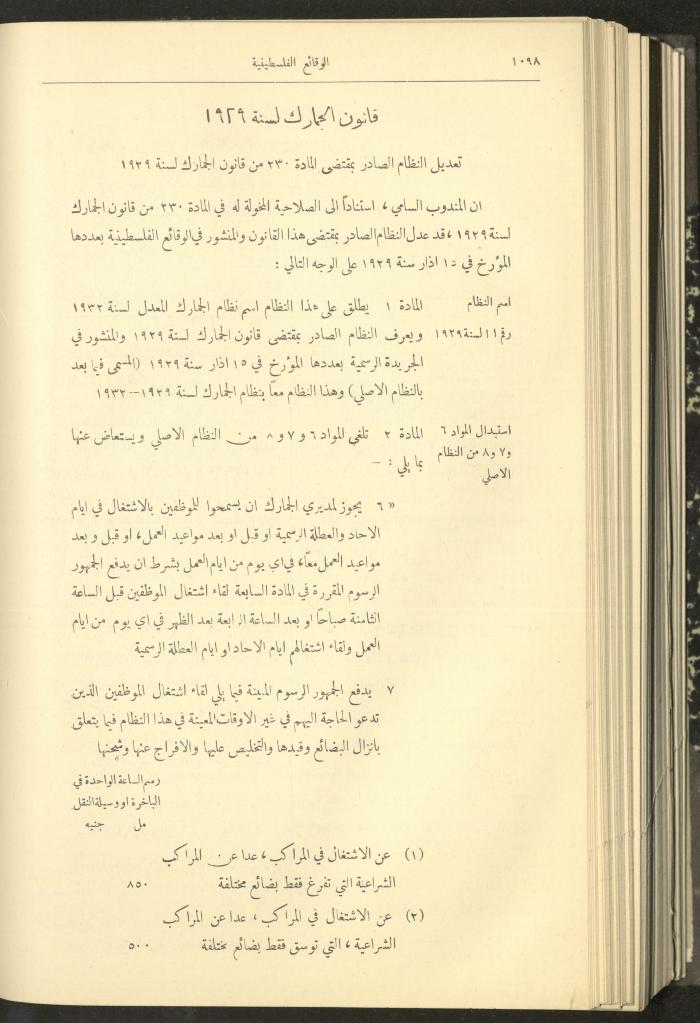 ١٠٩٨
الوقائع الفلسطينية
قانون الجمارك لسنة ١٩٢٩
تعديل النظام الصادر بمقتضى المادة ٢٣٠ من قانون الجمارك لسنة ١٩٢٩
ان المندوب السامي ، استناداً الى الصلاحية المخولة له في المادة ٢٣٠ من قانون الجمارك
لسنة ١٩٢٩ ، قد عدل النظام الصادر بمقتضى هذا القانون والمنشور في الوقائع الفلسطينية بعددها
المؤرخ في ١٥ اذار سنة ١٩٢٩ على الوجه التالي :
اسم النظام
رقم ١١ لسنة ١٩٢٩
المادة ١ يطلق على هذا النظام اسم نظام الجمارك المعدل لسنة ١٩٣٢
ويعرف النظام الصادر بمقتضى قانون الجمارك لسنة ١٩٢٩ والمنشور في
الجريدة الرسمية بعددها المؤرخ في ١٥ اذار سنة ١٩٢٩ (المسمى فيما بعد
بالنظام الاصلي) وهذا النظام معاً بنظام الجمارك لسنة ١٩٢٩–١٩٣٢
استبدال المواد ٦
و٧ و٨ من النظام
الاصلي
المادة ٢ تلغى المواد ٦ و ٧ و ٨ من النظام الاصلي ويستعاض عنها
بما يلي : —
« ٦ يجوز لمديري الجمارك ان يسمحوا للموظفين بالاشتغال في ايام
الاحاد والعطلة الرسمية او قبل او بعد مواعيد العمل ، او قبل وبعد
مواعيد العمل معاً ، في اي يوم من ايام العمل بشرط ان يدفع الجمهور
الرسوم المقررة في المادة السابعة لقاء اشتغال الموظفين قبل الساعة
الثامنة صباحاً او بعد الساعة الرابعة بعد الظهر في اي يوم من ايام
العمل ولقاء اشتغالهم ايام الاحاد او ايام العطلة الرسمية
٧ يدفع الجمهور الرسوم المبينة فيما يلي لقاء اشتغال الموظفين الذين
تدعو الحاجة اليهم في غير الاوقات المعينة في هذا النظام فيما يتعلق
بانزال البضائع وقيدها والتخليص عليها والافراج عنها وشحنها
رسم الساعة الواحدة في
الباخرة او وسيلة النقل
مل جنيه
(١) عن الاشتغال في المراكب ، عدا عن المراكب
الشراعية التي تفرغ فقط بضائع مختلفة ٨٥٠
(٢) عن الاشتغال في المراكب ، عدا عن المراكب
الشراعية ، التي توسق فقط بضائع مختلفة ٥٠٠